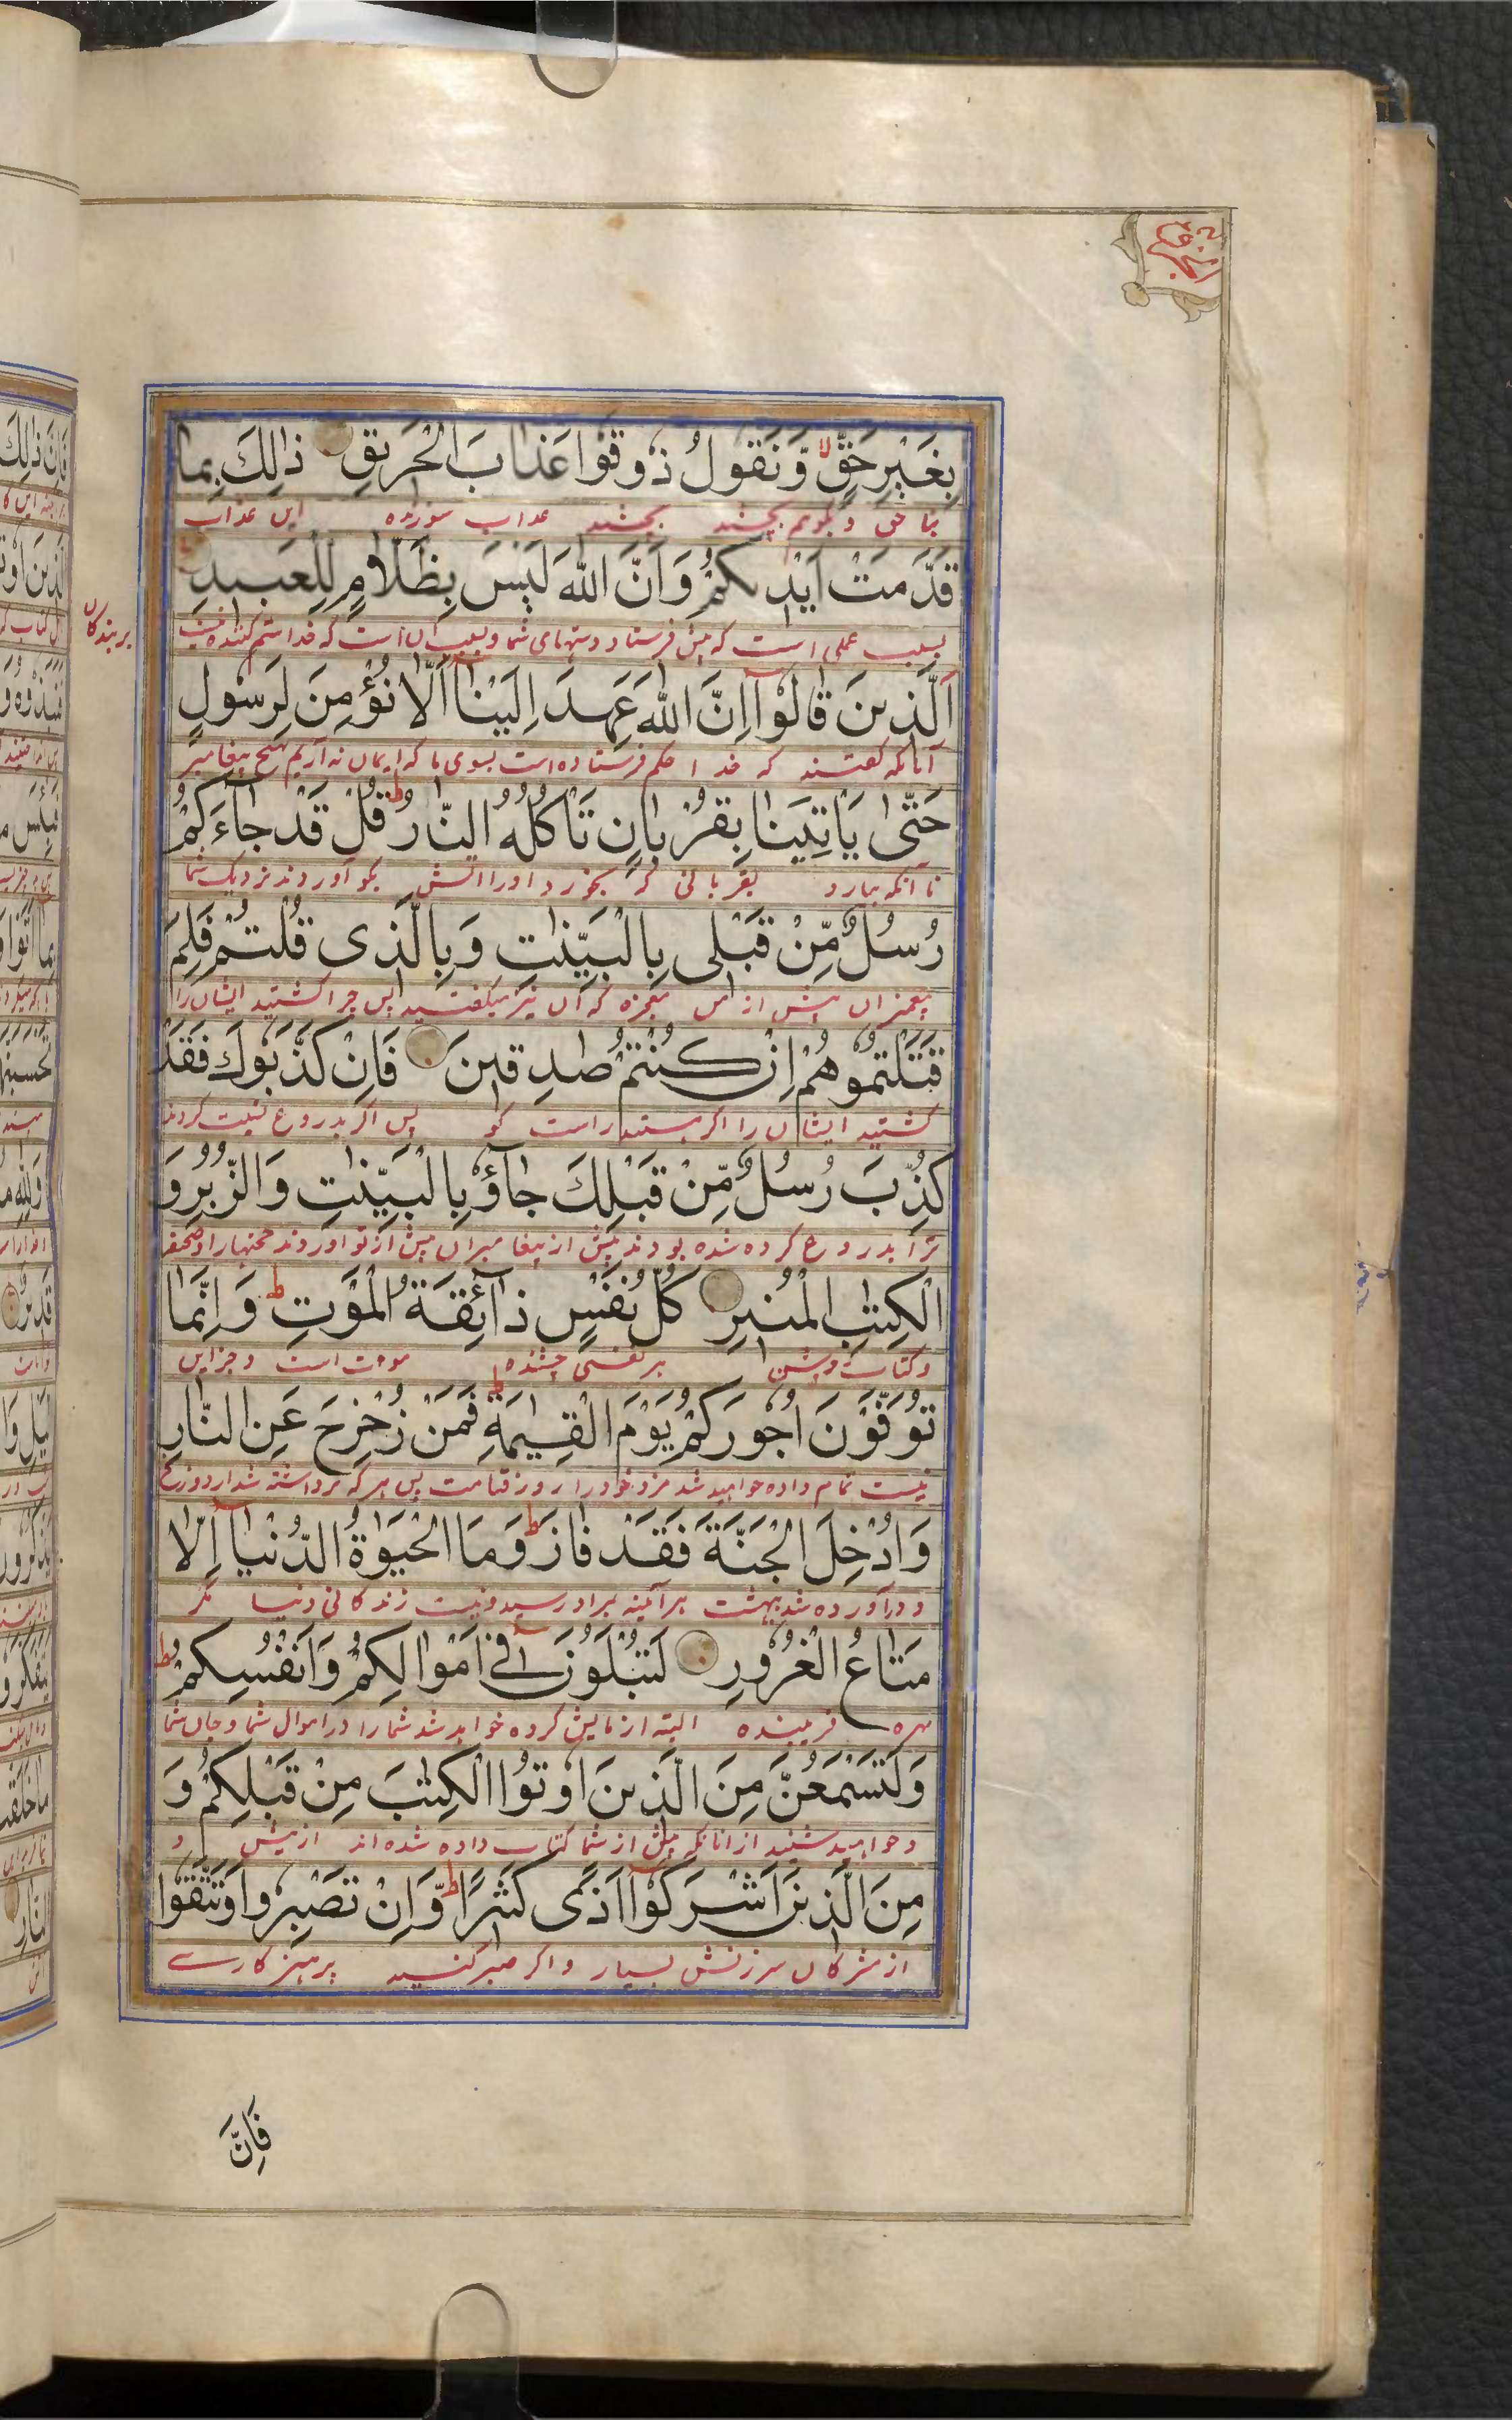 بِغَيْرِ حَقٍّ ۙ وَّنَقُولُ ذُوقُوا عَذَابَ الْحَرِيقِ ذٰلِكَ بِمَا
بنا حق و بگویم بچشید بچشید عذاب سوزنده این عذاب
قَدَّمَتْ اَيْدِيكُمْ وَاَنَّ اللّٰهَ لَيْسَ بِظَلَّامٍ لِلْعَبِيدِ
بسبب عملی است که پیش فرستاد دستهای شما و بسبب آن است که خدا ستم کننده نیست
بر بندگان
اَلَّذِينَ قَالُوْا اِنَّ اللّٰهَ عَهِدَ اِلَيْنَا اَلَّا نُؤْمِنَ لِرَسُولٍ
آنانکه گفتند که خدا حکم فرستاده است بسوی ما که ایمان نه آریم هیچ پیغامبر
حَتّٰى يَاْتِيَنَا بِقُرْبَانٍ تَاْكُلُهُ النَّارُ ۗ قُلْ قَدْ جَآءَكُمْ
تا آنکه بیارد بقربانی که بخورد او را آتش بگو آوردند نزدیک شما
رُسُلٌ مِّنْ قَبْلِى بِالْبَيِّنٰتِ وَبِالَّذِى قُلْتُمْ فَلِمَ
پیغمبران پیش از من معجزه که آن نیز میگفتید پس چرا کشتید ایشان را
قَتَلْتُمُوْهُمْ اِنْ كُنْتُمْ صٰدِقِينَ فَاِنْ كَذَّبُوكَ فَقَدْ
کشتید ایشان را اگر هستید راست گو پس اگر بدروغ نسبت کردند
كُذِّبَ رُسُلٌ مِّنْ قَبْلِكَ جَآؤُ بِالْبَيِّنٰتِ وَالزُّبُرِ وَ
ترا بدروغ کرده شده بودند پیش از پیغامبران پیش از تو آوردند حجتها را و صحیفه
الْكِتٰبِ الْمُنِيرِ كُلُّ نَفْسٍ ذَآئِقَةُ الْمَوْتِ ۗ وَاِنَّمَا
و کتاب روشن هر نفسی چشنده موت است و جز این
تُوَفَّوْنَ اُجُورَكُمْ يَوْمَ الْقِيٰمَةِ ۗ فَمَنْ زُحْزِحَ عَنِ النَّارِ
نیست تمام داده خواهید شد مزد خود را روز قیامت پس هر که برداشته شد از دوزخ
وَاُدْخِلَ الْجَنَّةَ فَقَدْ فَازَ ۗ وَمَا الْحَيٰوةُ الدُّنْيَآ اِلَّا
و درآورده شد بهشت هر آئینه بمراد رسید و نیست زندگانی دنیا مگر
مَتَاعُ الْغُرُورِ لَتُبْلَوُنَّ فِىٓ اَمْوَالِكُمْ وَاَنْفُسِكُمْ ۗ
بهره فریبنده البته آزمایش کرده خواهد شد شما را در اموال شما و جان شما
وَلَتَسْمَعُنَّ مِنَ الَّذِينَ اُوتُوا الْكِتٰبَ مِنْ قَبْلِكُمْ وَ
و خواهید شنید از آنانکه پیش از شما کتاب داده شده اند از پیش و
مِنَ الَّذِينَ اَشْرَكُوْآ اَذًى كَثِيرًا ۗ وَّاِنْ تَصْبِرُوا وَتَتَّقُوا
از مشرکان سرزنش بسیار و اگر صبر کنید پرهیز کارے
فَاِنَّ